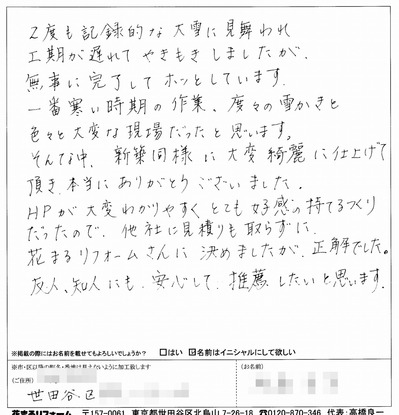 2度も記録的な大雪に見舞われ
工期が遅れて やきもきしましたが、
無事に完了してホッとしています。
一番寒い時期の作業、度々の雪かきと
色々と大変な現場だったと思います。
そんな中、新築同様に大変綺麗に仕上げて
頂き、本当にありがとうございました。
HPが大変わかりやすく、とても好感の持てるつくり
だったので、他社に見積りも取らずに、
花まるリフォームさんに決めましたが、正解でした。
友人、知人にも、安心して、推薦したいと思います。
※掲載の際にはお名前を載せてもよろしいでしょうか? □はい ☑名前はイニシャルにして欲しい
(ご住所)
(お名前)
世田谷区
花まるリフォーム 〒157-0061 東京都世田谷区北烏山7-26-18 0120-870-346 代表:高橋良一